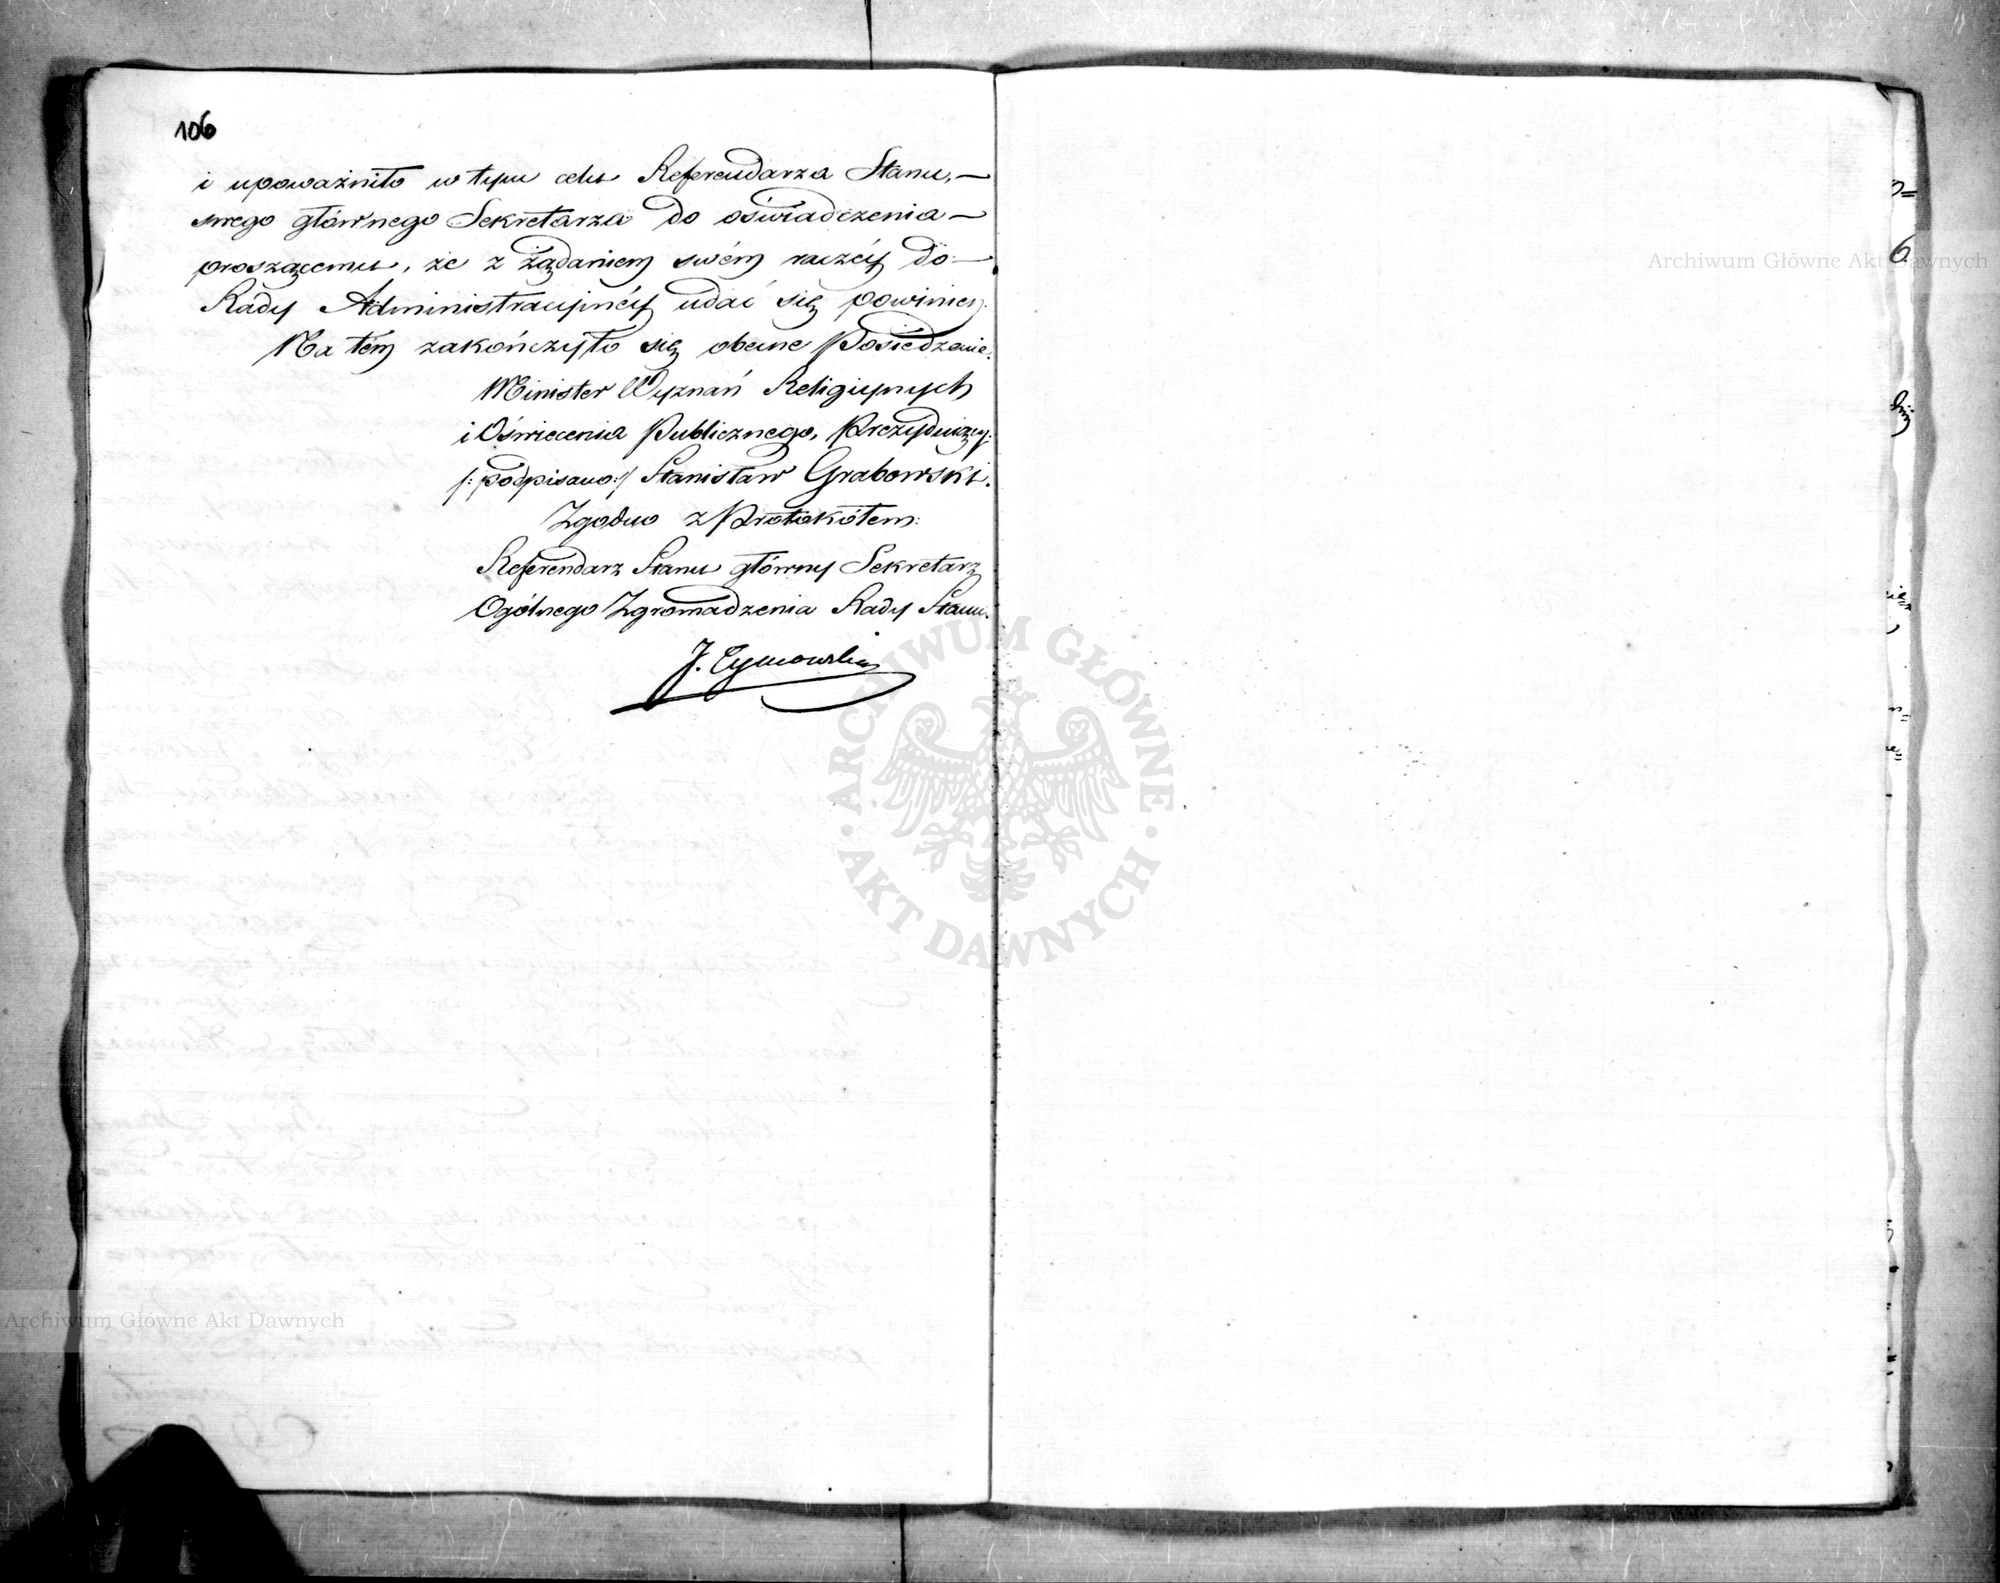 106
i upoważniło w tym celu Referendarza Stanu, —
swego głównego Sekretarza do oświadczenia —
proszącemu, że z żądaniem swém raczéj do —
Rady Administracyjnéj udać się powinien.
Na tém zakończyło się obecne Posiedzenie.
Minister Wyznań Religijnych
i Oświecenia Publicznego, Prezydujący:
/: podpisano :/ Stanisław Grabowski.
Zgodno z Protokółem:
Referendarz Stanu główny Sekretarz
Ogólnego Zgromadzenia Rady Stanu.
J. Tymowski
ARCHIWUM GŁÓWNE AKT DAWNYCH
Archiwum Główne Akt Dawnych
Archiwum Główne Akt Dawnych